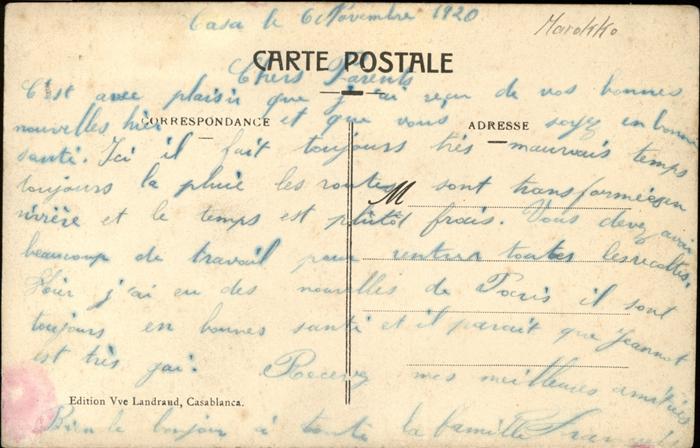 Casa le 6 Novembre 1920
Marokko
CARTE POSTALE
Chers Parents
C'est avec plaisir que j'ai reçu de vos bonnes
CORRESPONDANCE
ADRESSE
nouvelles hier et que vous soyez en bonne
santé. Ici il fait toujours très mauvais temps
toujours la pluie les routes sont transformées en
M
rivière et le temps est plutôt frais. Vous devez avoir
beaucoup de travail pour rentrer toutes les recoltes.
Hier j'ai eu des nouvelles de Paris il sont
toujours en bonnes santé et il parait que Jeannot
est très gai. Recevez mes meilleures amitiés
Edition Vve Landraud, Casablanca.
Bien le bonjour à toute la famille